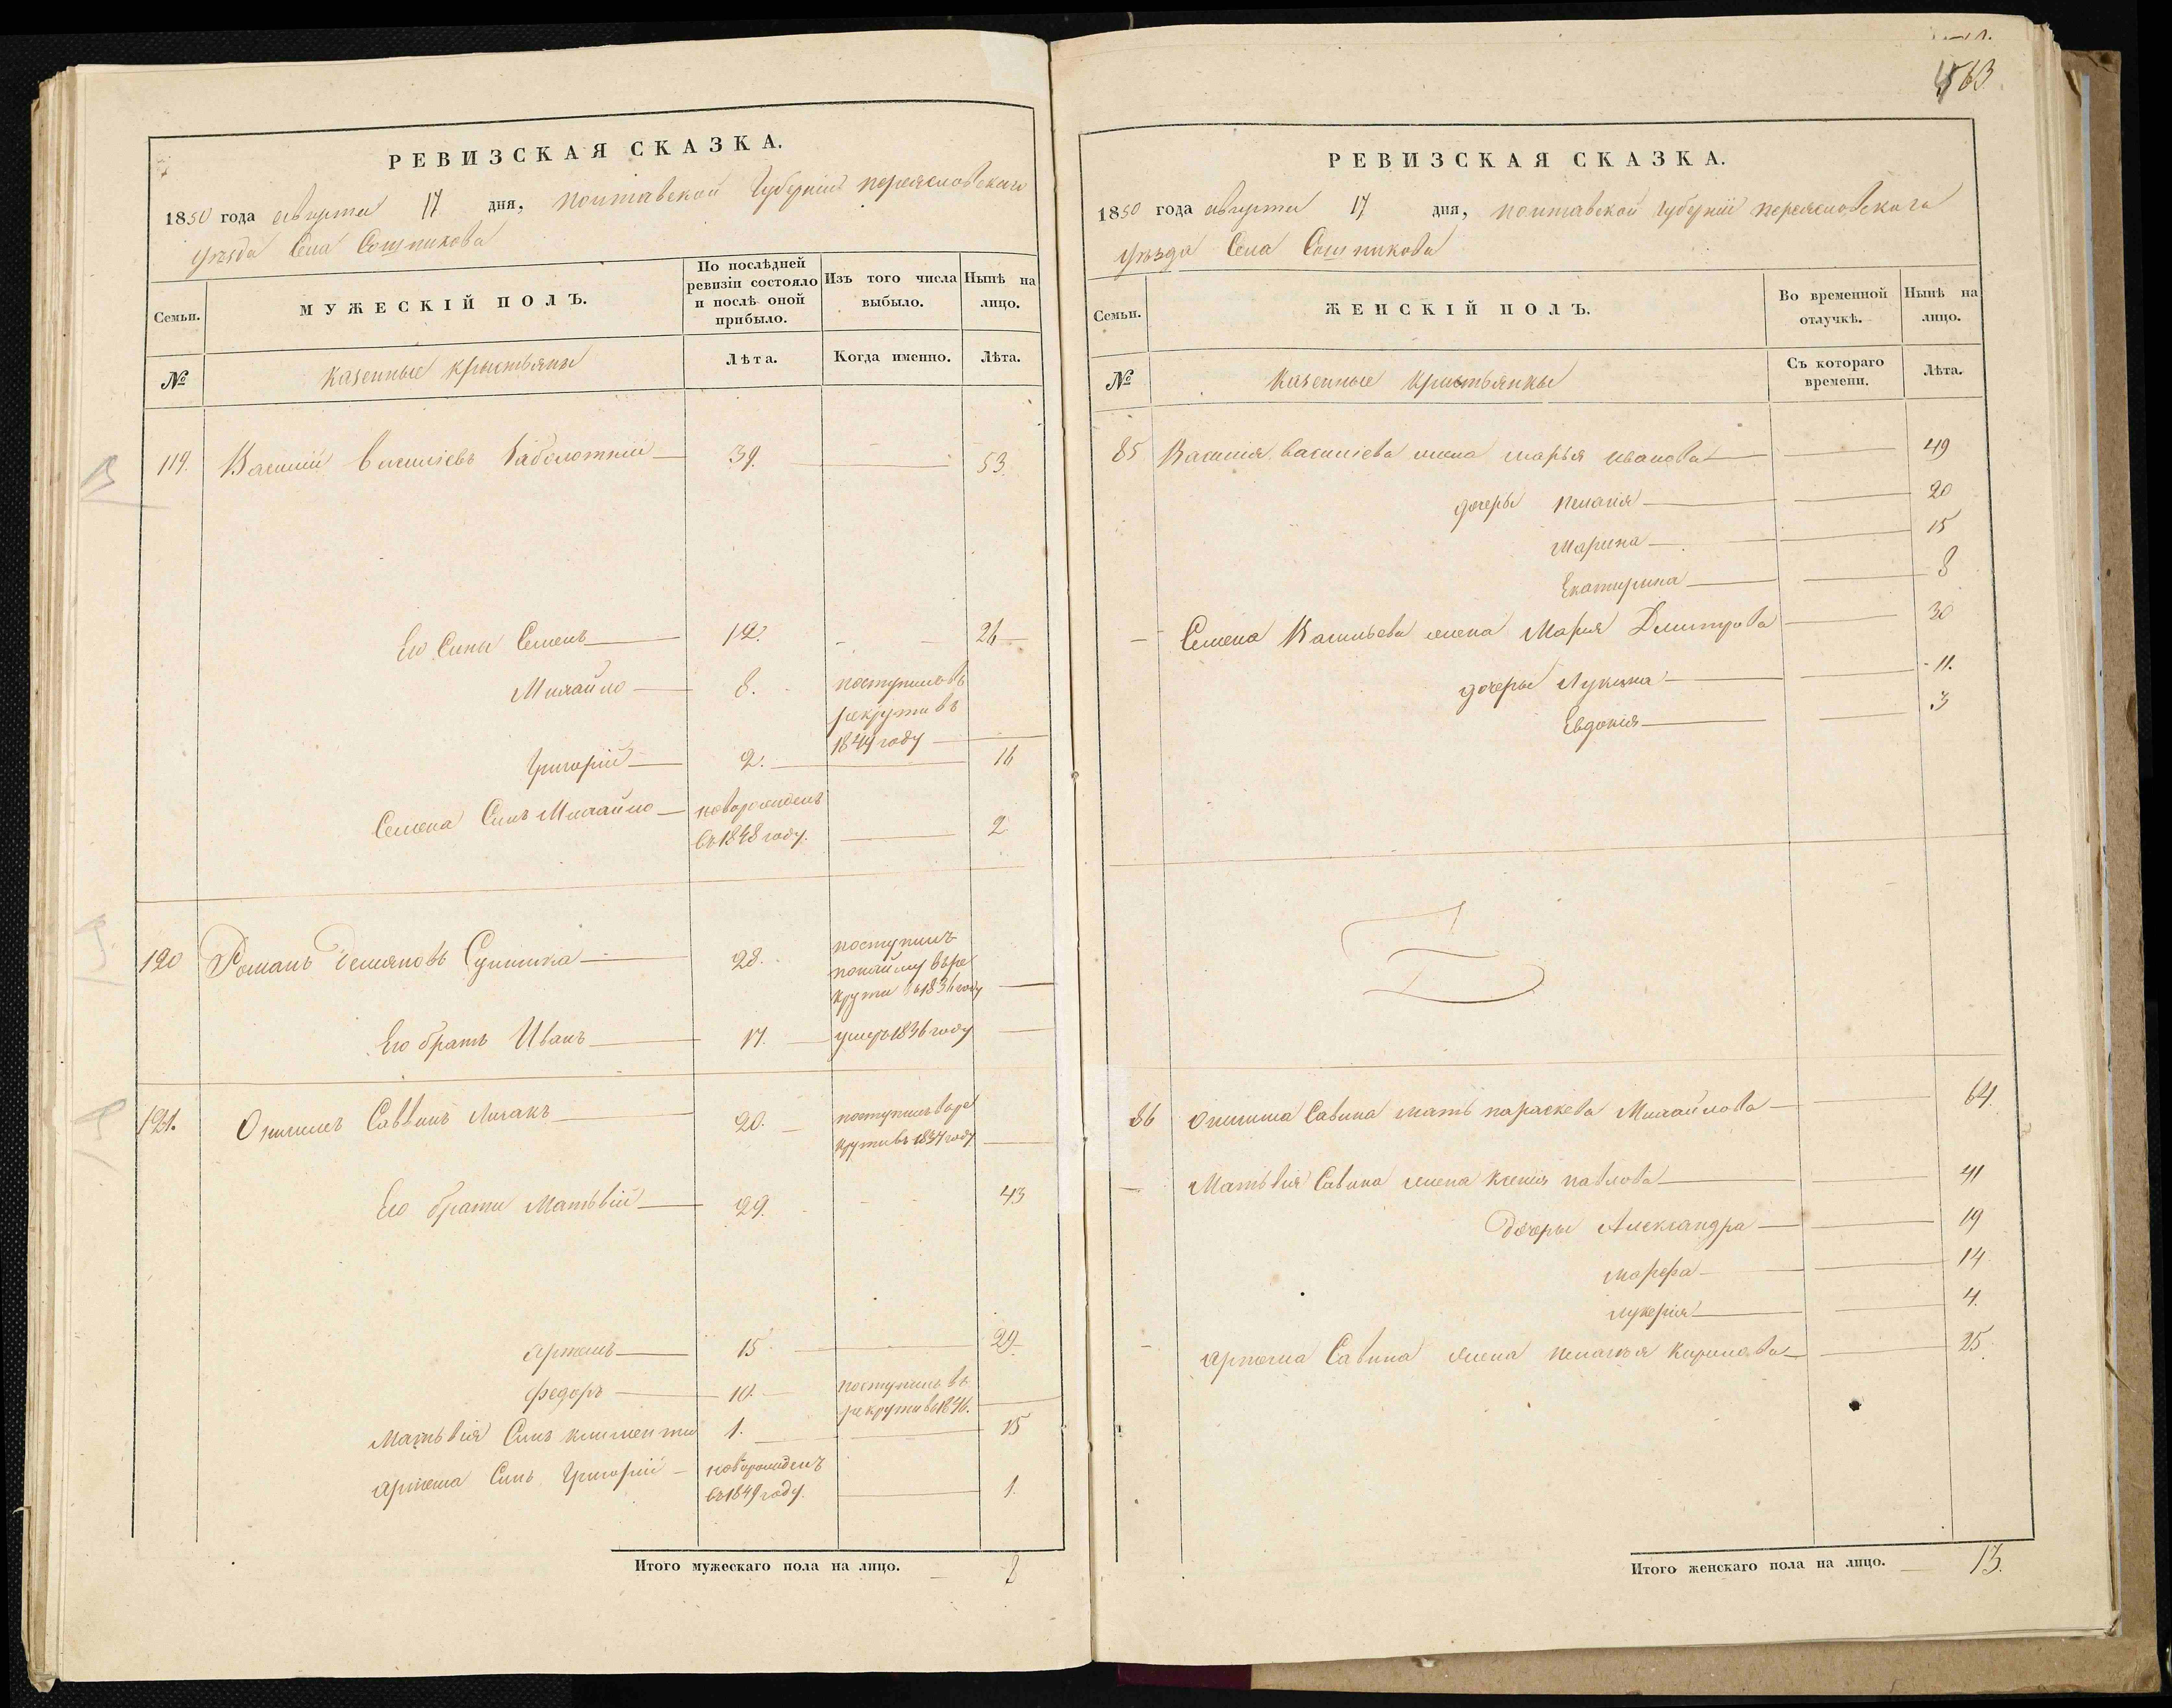 563
РЕВИЗСКАЯ СКАЗКА.
1850 года августа 17 дня, полтавской Губерніи переясловскаго
уѣзда Села Сошникова
Семьи.
МУЖЕСКІЙ ПОЛЪ.
По послѣдней ревизіи состояло и послѣ оной прибыло.
Изъ того числа выбыло.
Нынѣ на лицо.
№
казенные кристьяны
Лѣта.
Когда именно.
Лѣта.
119. Василій Василіевъ Заболотній 39. 53.
Его Сины Семенъ 12. 26
Михайло 8. поступилъ въ
рекруты въ
1844 году
Григорій 2. 16
Семена Синъ Михайло новорожденъ
въ 1848 году. 2
120 Романъ Демяновъ 28. поступилъ
понайму въ ре
круты въ 1836 году
Его братъ Иванъ 17. умеръ 1836 году
121. Онисимъ Саввинъ Личакъ 20. поступилъ въ ре
круты въ 1837 году
Его браты Матьвій 29. 43
Артемъ 15 29
Федоръ 10. поступилъ въ
рекруты въ 1846.
Матьвія Синъ климентій 1. 15
Артема Синъ Григорій новорожденъ
въ 1849 году. 1.
Итого мужескаго пола на лицо. 8
РЕВИЗСКАЯ СКАЗКА.
1850 года августа 17 дня, полтавской губерніи переясловскаго
уѣзда Села Сошникова
Семьи.
ЖЕНСКІЙ ПОЛЪ.
Во временной отлучкѣ.
Нынѣ на лицо.
№
Казенные Кристьянкы
Съ котораго времени.
Лѣта.
85 Василія василіева жена марья иванова 49
дочеры пелагія 20
Марина 15
Екатирина 8
Семена Васильева жена Мария Дмитрова 30
дочеры Лукина 11.
Евдокія 3
86 Онисима Савина мать параскева Михайлова 64
Матьвія Савина жена ксенія павлова 41
Дочеры Александра 19
марфа 14
лукерія 4.
артема Савина жена пелагѣя Кирилова 25.
Итого женскаго пола на лицо. 13.